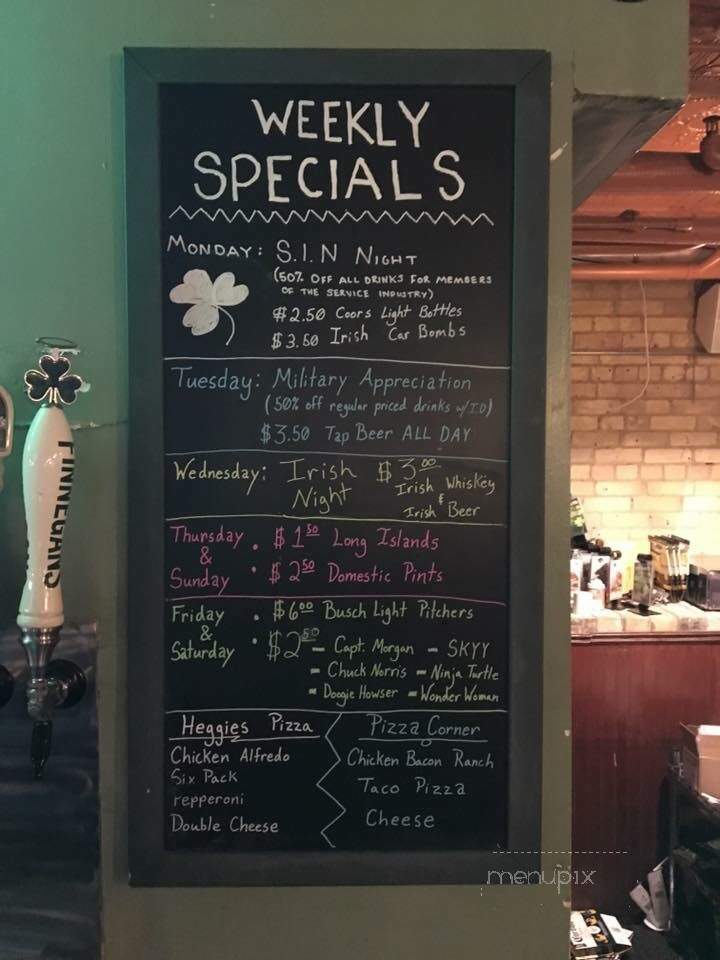 WEEKLY
SPECIALS
MONDAY: S.I.N NIGHT
(50% OFF ALL DRINKS FOR MEMBERS
OF THE SERVICE INDUSTRY)
$2.50 Coors Light Bottles
$3.50 Irish Car Bombs
Tuesday: Military Appreciation
(50% off regular priced drinks w/ID)
$3.50 Tap Beer ALL DAY
Wednesday: Irish Night
$3.00 Irish Whiskey
& Irish Beer
Thursday & Sunday
• $1.50 Long Islands
• $2.50 Domestic Pints
Friday & Saturday
• $6.00 Busch Light Pitchers
• $2.50 - Capt. Morgan - SKYY
- Chuck Norris - Ninja Turtle
- Doogie Howser - Wonder Woman
Heggies Pizza
Chicken Alfredo
Six Pack
Pepperoni
Double Cheese
Pizza Corner
Chicken Bacon Ranch
Taco Pizza
Cheese
FINNEGANS
menupix